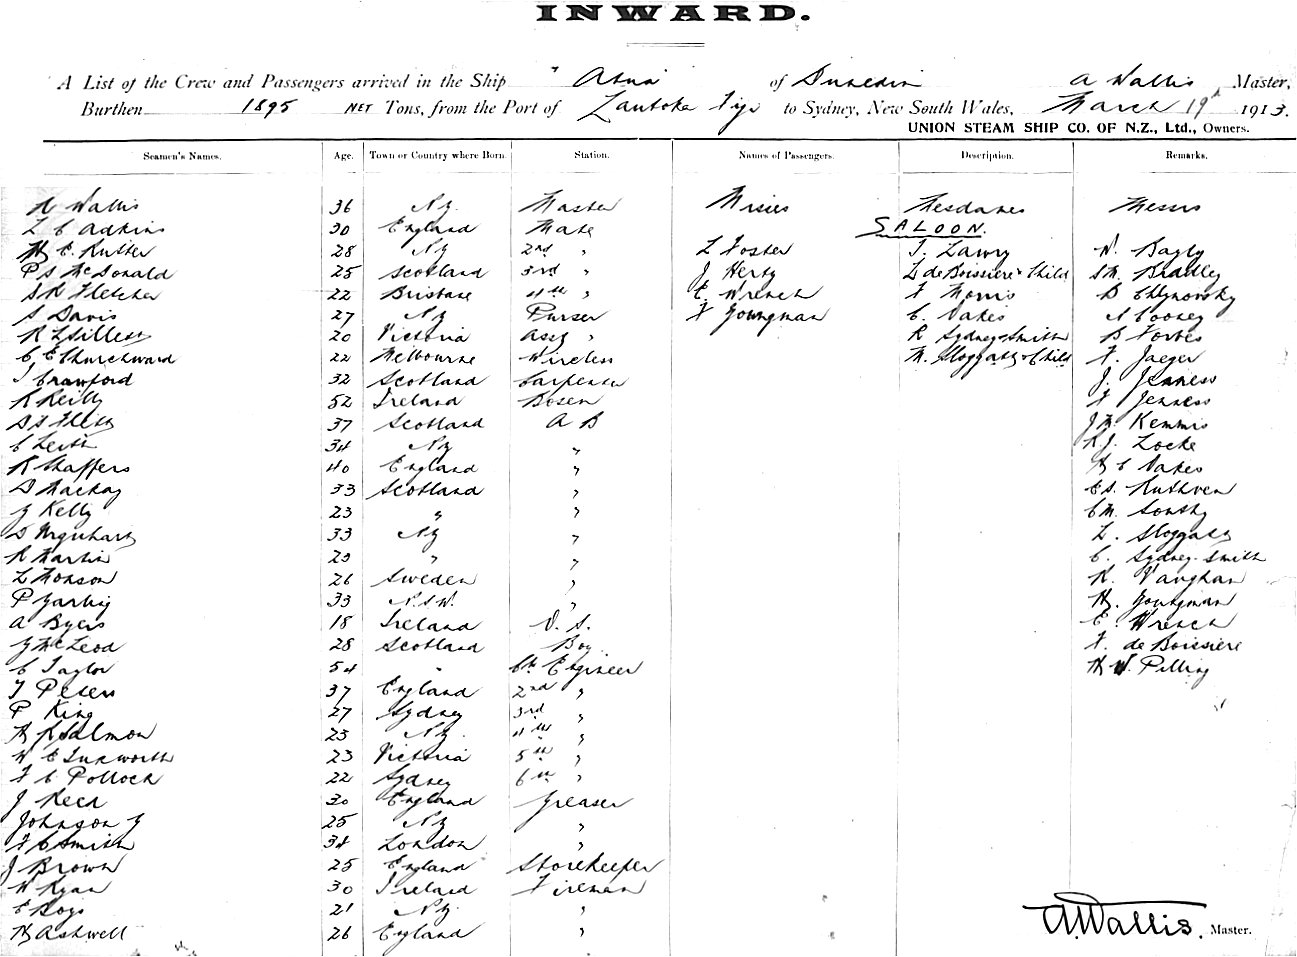 INWARD.
A List of the Crew and Passengers arrived in the Ship " Atua of Dunedin A Wallis Master,
Burthen 1895 NET Tons, from the Port of Lautoka Fiji to Sydney, New South Wales, March 19th 1913.
UNION STEAM SHIP CO. OF N.Z., Ltd., Owners.
Seamen's Names. Age. Town or Country where Born. Station. Names of Passengers. Description. Remarks.
A Wallis 36 N.Z. Master Misses Mesdames Messrs
L C Adkins 30 England Mate SALOON.
H E Rutter 28 NZ 2nd " L Foster T. Lawry W. Bagly
P S McDonald 25 Scotland 3rd " J Herty L de Boissiere & Child S M. Bradley
S R Fletcher 22 Brisbane 4th " E Wrench F Morris B Chlynovsky
S Davis 27 NZ Purser F Youngman C. Oakes A Cooney
R L Silless 20 Victoria Asst " R Sydney-Smith B Forbes
C E Churchward 22 Melbourne Wireless M. Sloggatt & Child F. Jaeger
J Crawford 32 Scotland Carpenter J. Jenness
R Reilly 52 Ireland Bosen F Jenness
D S Flett 37 Scotland A B J M. Kemmis
C Leith 34 NZ " R J. Locke
R Chaffers 40 England " H C Oakes
D Mackay 33 Scotland " E S. Ruthven
J Kelly 23 " " C M. Southy
D Urquhart 33 NZ " L. Sloggatt
R Martin 23 " " C. Sydney-Smith
L Monson 26 Sweden " R. Vaughan
P Garbig 33 N.S.W. " H. Youngman
A Byers 18 Ireland O. S. E. Wrench
G McLeod 28 Scotland Boy F. de Boissiere
C Taylor 54 " Ch Engineer H W. Pilling
T Peters 37 England 2nd "
P King 27 Sydney 3rd "
H R Salmon 23 NZ. 4th "
W E Tunworth 23 Victoria 5th "
F C Pollock 22 Sydney 6th "
J Keen 30 England Greaser
Johnson G 25 NZ "
F C Smith 34 London "
J Brown 25 England Storekeeper
W Ryan 30 Ireland Fireman
E Roys 21 NZ "
H Ashwell 26 England "
A. Wallis. Master.